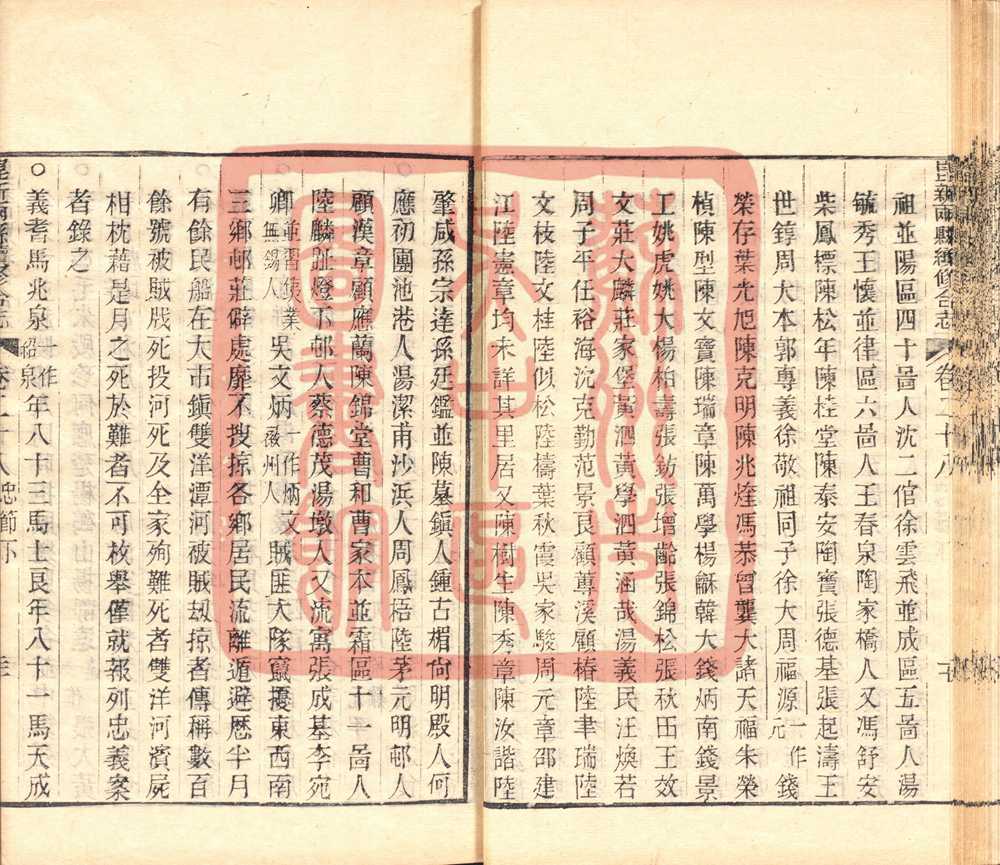 崑新兩縣續修合志
卷二十八
祖並陽區四十啚人沈二倌徐雲飛並成區五啚人湯
毓秀王懷並律區六啚人王春泉陶家橋人又馮舒安
柴鳳標陳松年陳桂堂陳泰安陶寶張德基張起濤王
世錞周大本郭專義徐敬祖同子徐大周福源一作元錢
榮存葉光旭陳克明陳兆烇馮恭曾龔大諸天福朱榮
楨陳型陳文寶陳瑞章陳萬學楊龢韓大錢炳南錢景
工姚虎姚大楊柏壽張鈁張增齡張錦松張秋田王效
文莊大麟莊家堡黃泗黃學泗黃涵哉湯義民汪煥若
周子平任裕海沈克勤范景良顧蓴溪顧椿陸聿瑞陸
文枝陸文桂陸似松陸檮葉秋霞吳家駿周元章邵建
江陸憲章均未詳其里居又陳樹生陳秀章陳汝諧陸
肇咸孫宗達孫廷鑑並陳墓鎭人鍾古楣尙明殿人何
應初團池港人湯潔甫沙浜人周鳳梧陸茅元明邨人
顧漢章顧應蘭陳錦堂曹和曹家本並霜區十一啚人
陸麟趾燈下邨人蔡德茂湯墩人又流寓張成基李宛
卿並習賈業無錫人吳文炳一作炳文徽州人賊匪大隊竄擾東西南
三鄉邨莊僻處靡不搜掠各鄉居民流離遁避歷半月
有餘民船在大市鎭雙洋潭河被賊刼掠者傳稱數百
餘號被賊戕死投河死及全家殉難死者雙洋河濱屍
相枕藉是月之死於難者不可枚舉僅就報列忠義案
者錄之
○義耆馬兆泉一作紹泉年八十三馬士良年八十一馬天成
崑新兩縣續修合志
卷二十八 忠節下